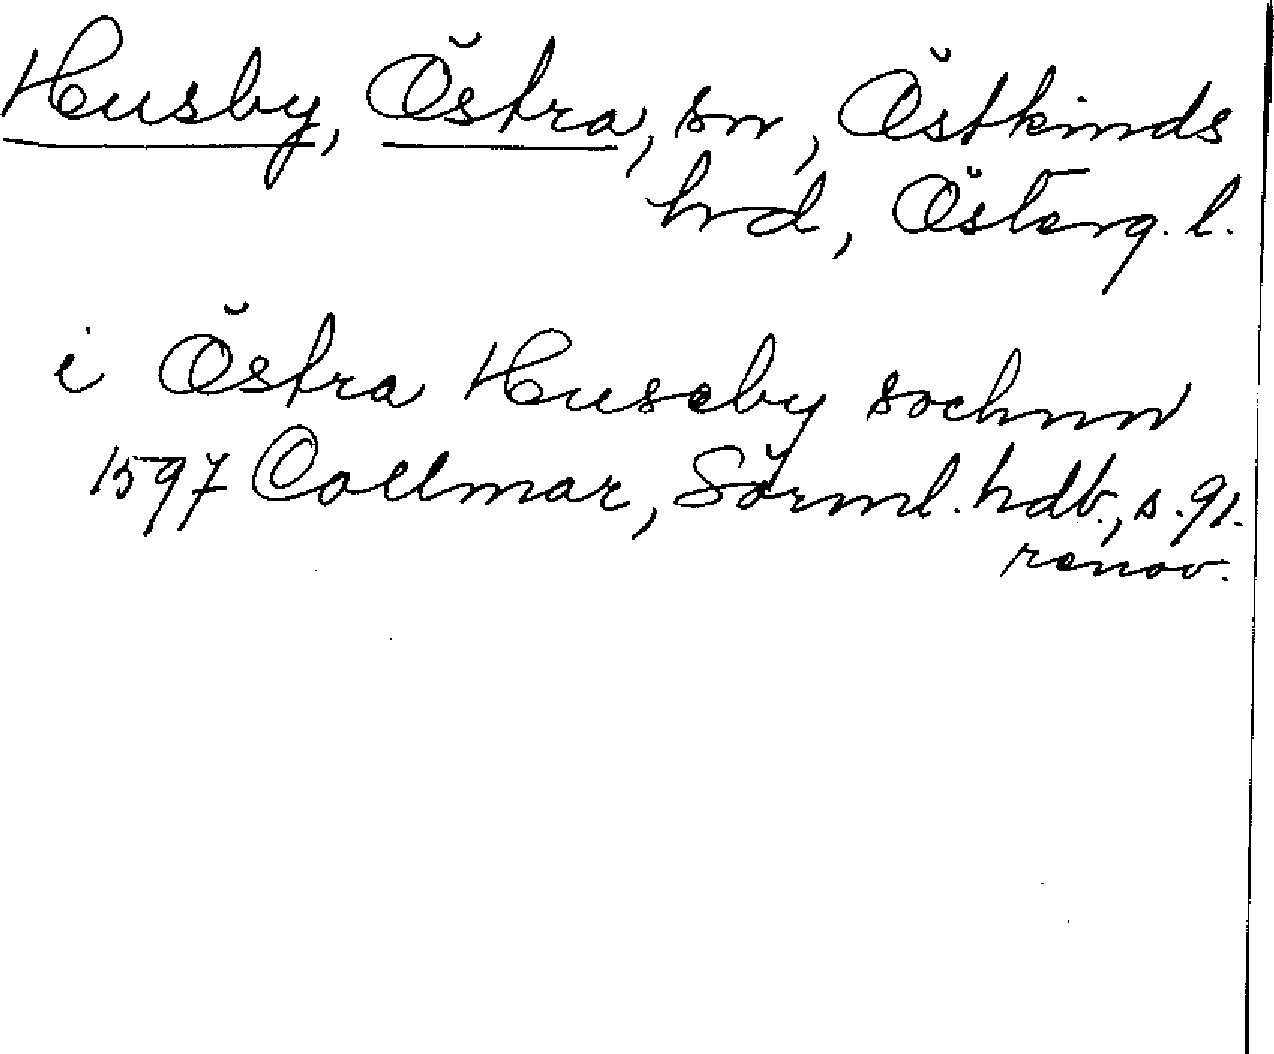 Husby, Östra, sn, Östkinds
hrd, Österg. l.
i Östra Huseby sochnn
1597 Collmar, Sörml. hdb., s. 91.
renov.